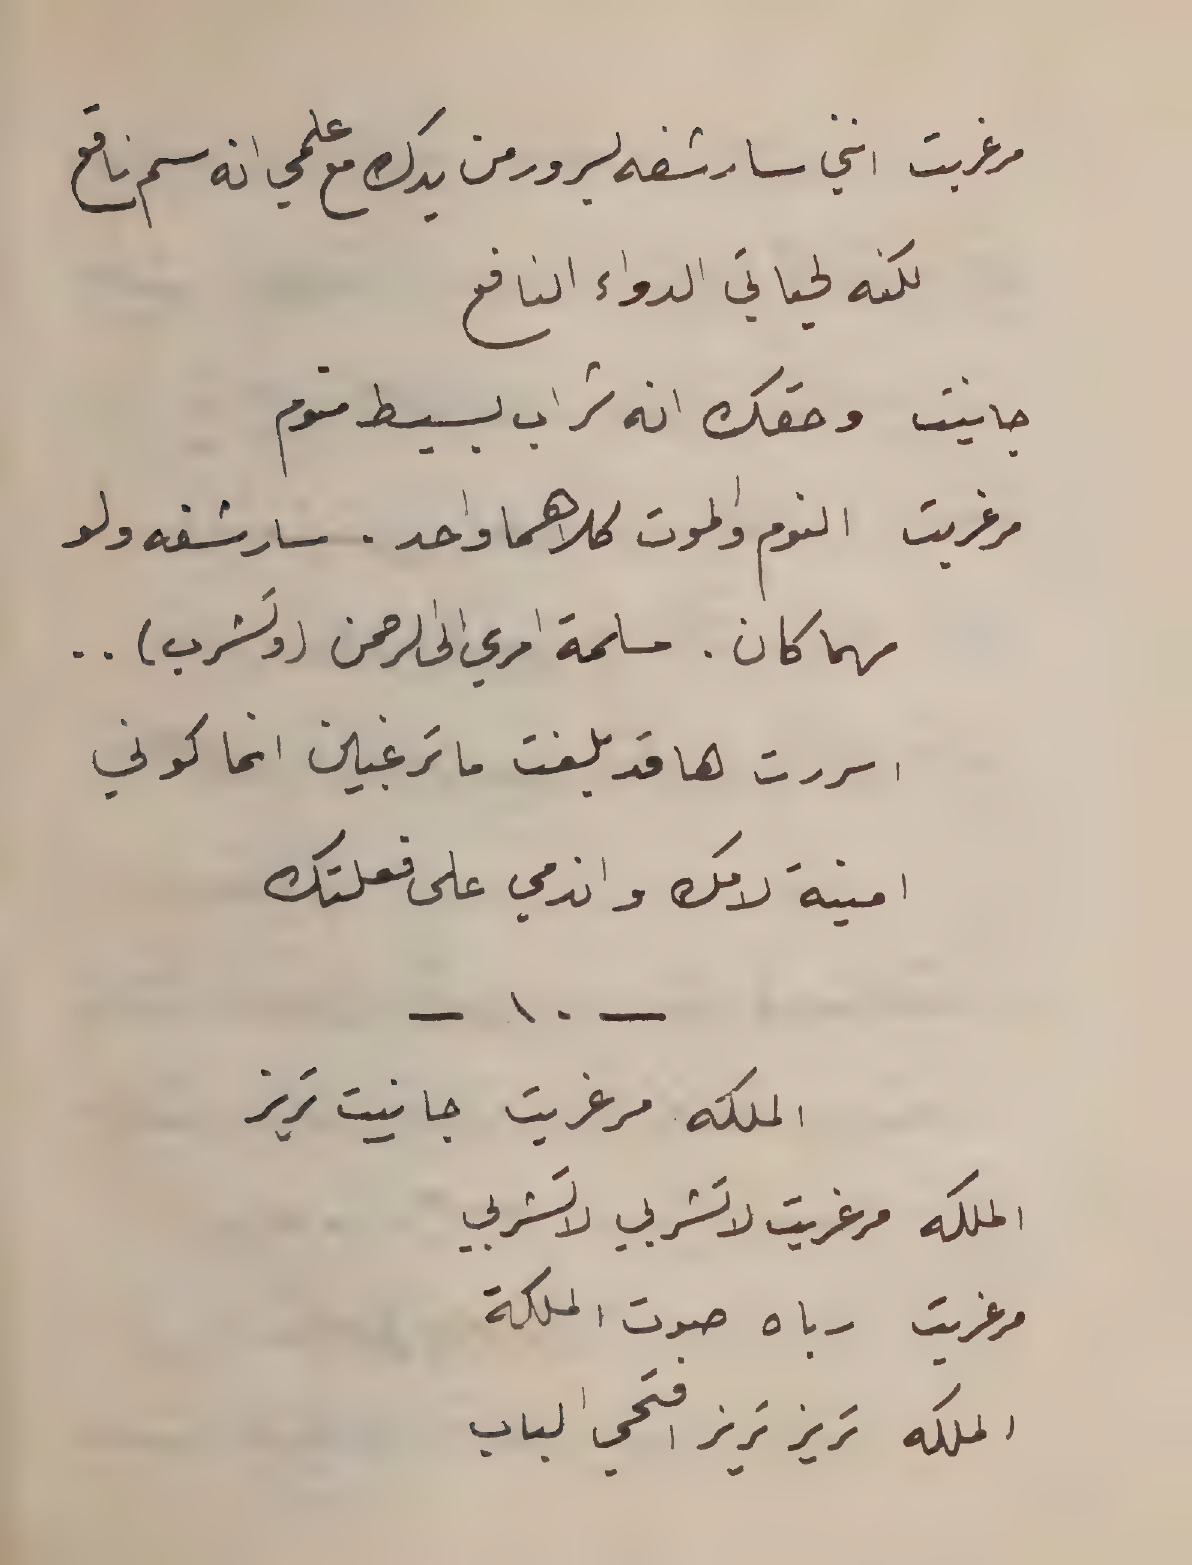 مرغريت انني سارشفه بسرور من يدك مع علمي انه سم ناقع
لكنه لحياتي الدواء النافع
جانيت وحقك انه شراب بسيط منوم
مرغريت النوم والموت كلاهما واحد . سارشفه ولو
مهما كان . مسلمة امري الى الرحمن (وتشرب) ..
اسررت ها قد بلغت ما ترغبين انما كوني
امينة لامك واندمي على فعلتك
— ١٠ —
الملكه مرغريت جانيت تريز
الملكه مرغريت لا تشربي لا تشربي
مرغريت رباه صوت الملكة
الملكه تريز تريز افتحي الباب